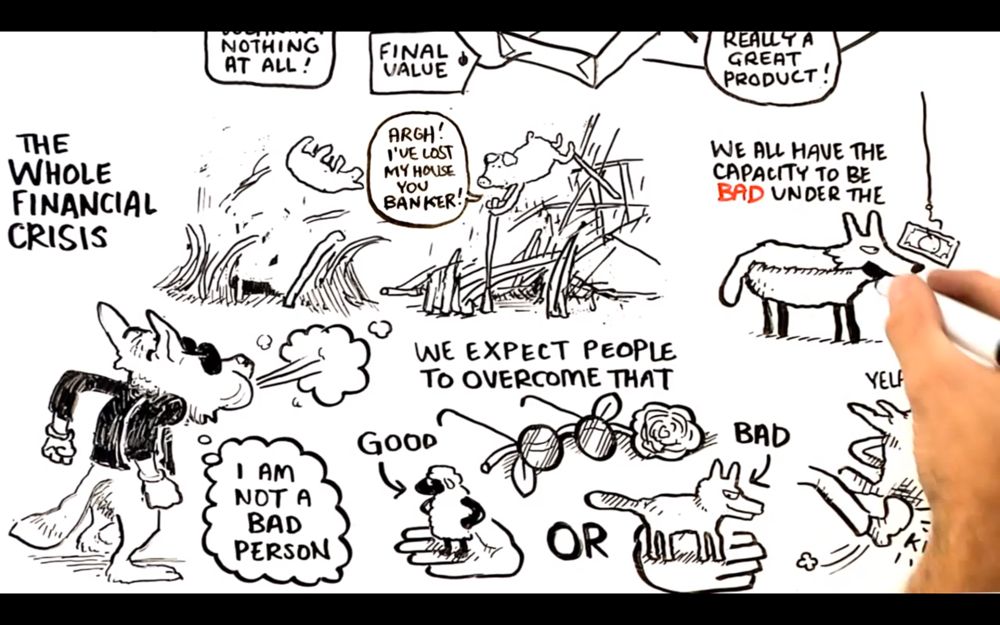 NOTHING
AT ALL!
FINAL
VALUE
REALLY A
GREAT
PRODUCT!
THE
WHOLE
FINANCIAL
CRISIS
ARGH!
I'VE LOST
MY HOUSE
YOU
BANKER!
WE ALL HAVE THE
CAPACITY TO BE
BAD UNDER THE
WE EXPECT PEOPLE
TO OVERCOME THAT
GOOD
OR
BAD
I AM
NOT A
BAD
PERSON